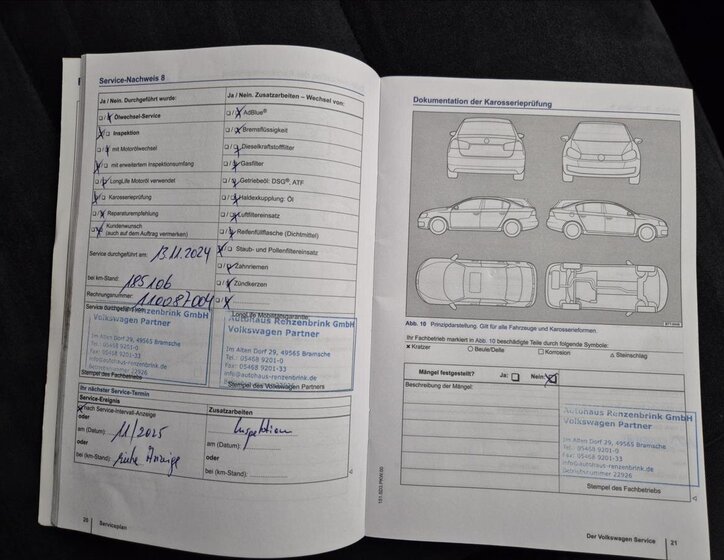 Service-Nachweis 8
Ja / Nein. Durchgeführt wurde:
Ölwechsel-Service
Inspektion
mit Motorölwechsel
mit erweitertem Inspektionsumfang
LongLife Motoröl verwendet
Karosserieprüfung
Reparaturempfehlung
Kundenwunsch
(auch auf dem Auftrag vermerken)
Service durchgeführt am: 13.11.2024
bei km-Stand: 185106
Rechnungsnummer: 110087004
Service durchgeführt von:
Autohaus Renzenbrink GmbH
Volkswagen Partner
Im Alten Dorf 29, 49565 Bramsche
Tel.: 05468 9201-0
Fax: 05468 9201-33
info@autohaus-renzenbrink.de
Stempel des Fachbetriebs
Ja / Nein. Zusatzarbeiten – Wechsel von:
AdBlue®
Bremsflüssigkeit
Dieselkraftstofffilter
Gasfilter
Getriebeöl: DSG®, ATF
Haldexkupplung: Öl
Luftfiltereinsatz
Reifenfüllflasche (Dichtmittel)
Staub- und Pollenfiltereinsatz
Zahnriemen
Zündkerzen
LongLife Mobilitätsgarantie:
Autohaus Renzenbrink GmbH
Volkswagen Partner
Im Alten Dorf 29, 49565 Bramsche
Tel.: 05468 9201-0
Fax: 05468 9201-33
info@autohaus-renzenbrink.de
Stempel des Volkswagen Partners
Ihr nächster Service-Termin
Service-Ereignis
nach Service-Intervall-Anzeige
oder
am (Datum): 11/2025
oder
bei (km-Stand): siehe Anzeige
Zusatzarbeiten
Inspektion
am (Datum):
oder
bei (km-Stand):
20 Serviceplan
Dokumentation der Karosserieprüfung
Abb. 10 Prinzipdarstellung. Gilt für alle Fahrzeuge und Karosserieformen.
Ihr Fachbetrieb markiert in Abb. 10 beschädigte Teile durch folgende Symbole:
x Kratzer ○ Beule/Delle □ Korrosion △ Steinschlag
Mängel festgestellt? Ja: Nein:
Beschreibung der Mängel:
Autohaus Renzenbrink GmbH
Volkswagen Partner
Im Alten Dorf 29, 49565 Bramsche
Tel.: 05468 9201-0
Fax: 05468 9201-33
info@autohaus-renzenbrink.de
Betriebsnummer 22926
Stempel des Fachbetriebs
Der Volkswagen Service 21